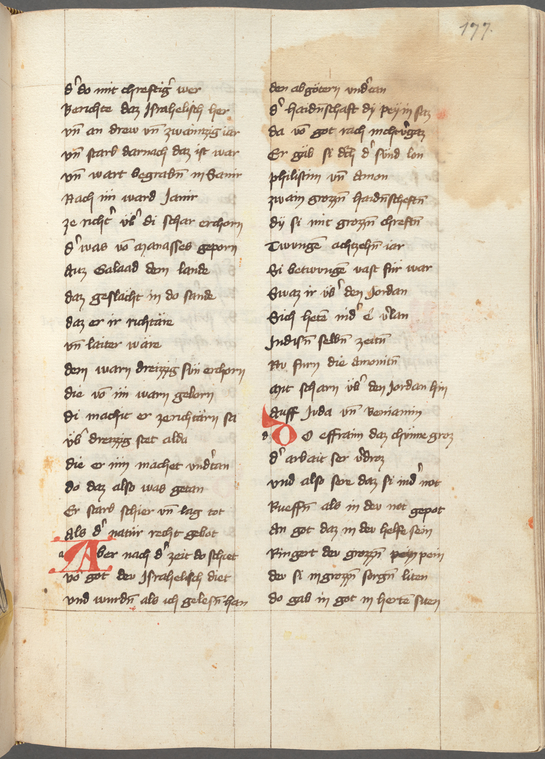 177.
d' do mit chreftig' wer
Berichte daz Israhelisch her
vn̄ an drew vn̄ zwainzig iar
vn̄ starb darnach daz ist war
vn̄ wart begrabn̄ in Samir
Nach im ward Jair
ze richt' vb' di schar erchorn
d' was vō manasses geporn
Auz Galaad dem lande
daz geslächt in do sande
daz er ir richtäre
vn̄ laiter wäre
dem warn dreizzig sün erchorn
die vō im warn geborn
di macht er ze richtärn sa
vb' dreizzig stet alda
die er im machet vnd'tan
do daz also was getan
Er starb schier vn̄ lag tot
als d' natur recht gebot
Aber nach d' zeit do schiet
vō got der Israhelisch diet
vnd wurdn̄ als ich gelesn̄ han
den abgötern vnd'tan
d' haidn̄schaft dy
da vō got rach
Er gab si d' sünd lon
philistim vn̄ Amon
zwain grozzn̄ haidn̄scheftn̄
dy si mit grozzn̄ chreftn̄
Twungē achtzehn̄ iar
Si betwungē vast für war
Swaz ir vb' den Jordan
Sich hetē nid'
Indisn̄ selbn̄ zeitn̄
Nv furn die amonitn̄
Mit scharn vb' den Jordan hin
Auff Juda vn̄ Beniamin
Do effraim daz chünne groz
d' arbait ser v'droz
vnd also sere daz si ind' not
Rueffn̄ als in der not gepot
An got daz in der helfe sein
Ringert der grozzn̄ pein
der si in grozzn̄ sorgn̄ liten
do gab in got in herte siten